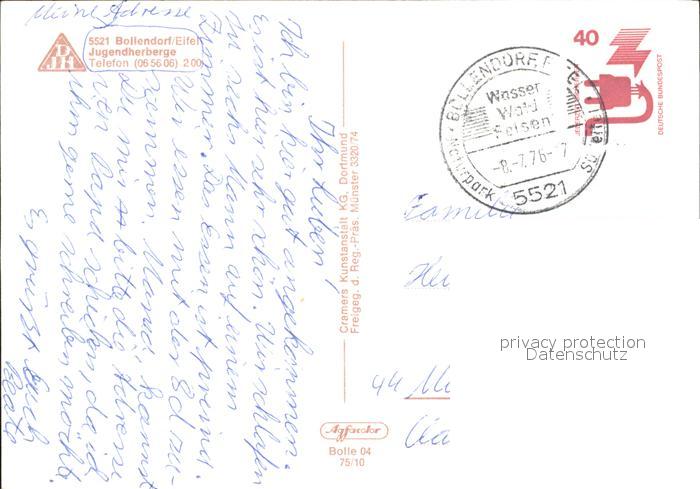 Meine Adresse
5521 Bollendorf/Eifel
Jugendherberge
Telefon (06 56 06) 200
DJH
Ihr Lieben!
Ich bin hier gut angekommen.
Es ist hier sehr schön. Wir schlafen
zu sechs Mann auf einem
Zimmer. Das Essen ist prima.
Wir essen mit der 8d zu-
sammen. Mama, kannst
Du mir bitte die Adresse
von schicken, da ich
ihm gerne schreiben möchte.
Es grüßt Euch
Cramers Kunstanstalt KG, Dortmund
Freigeg. d. Reg.-Präs. Münster 3320/74
Agfacolor
Bolle 04
75/10
40
JEDERZEIT SICHERHEIT
DEUTSCHE BUNDESPOST
BOLLENDORF
Wasser
Wald
Felsen
-8.-7.76--7
5521
Naturpark Südeifel
Familie
Hei
44 Mü
privacy protection
Datenschutz